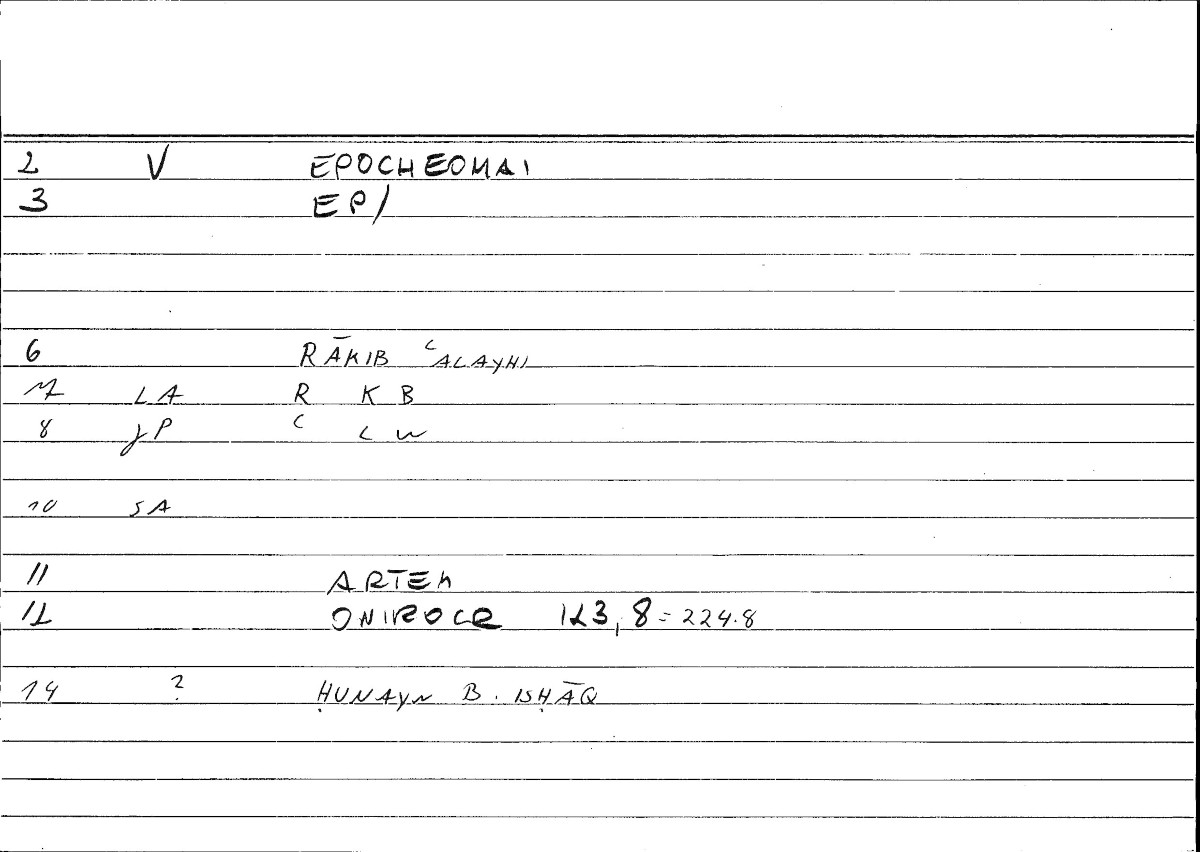 2 V EPOCHEOMAI
3 EP/
6 RĀKIB ʿALAYHI
7 LA R K B
8 JP ʿ L W
10 SA
11 ARTEM
12 ONIROCR 123, 8 = 224.8
14 ? ḤUNAYN B. ISḤĀQ